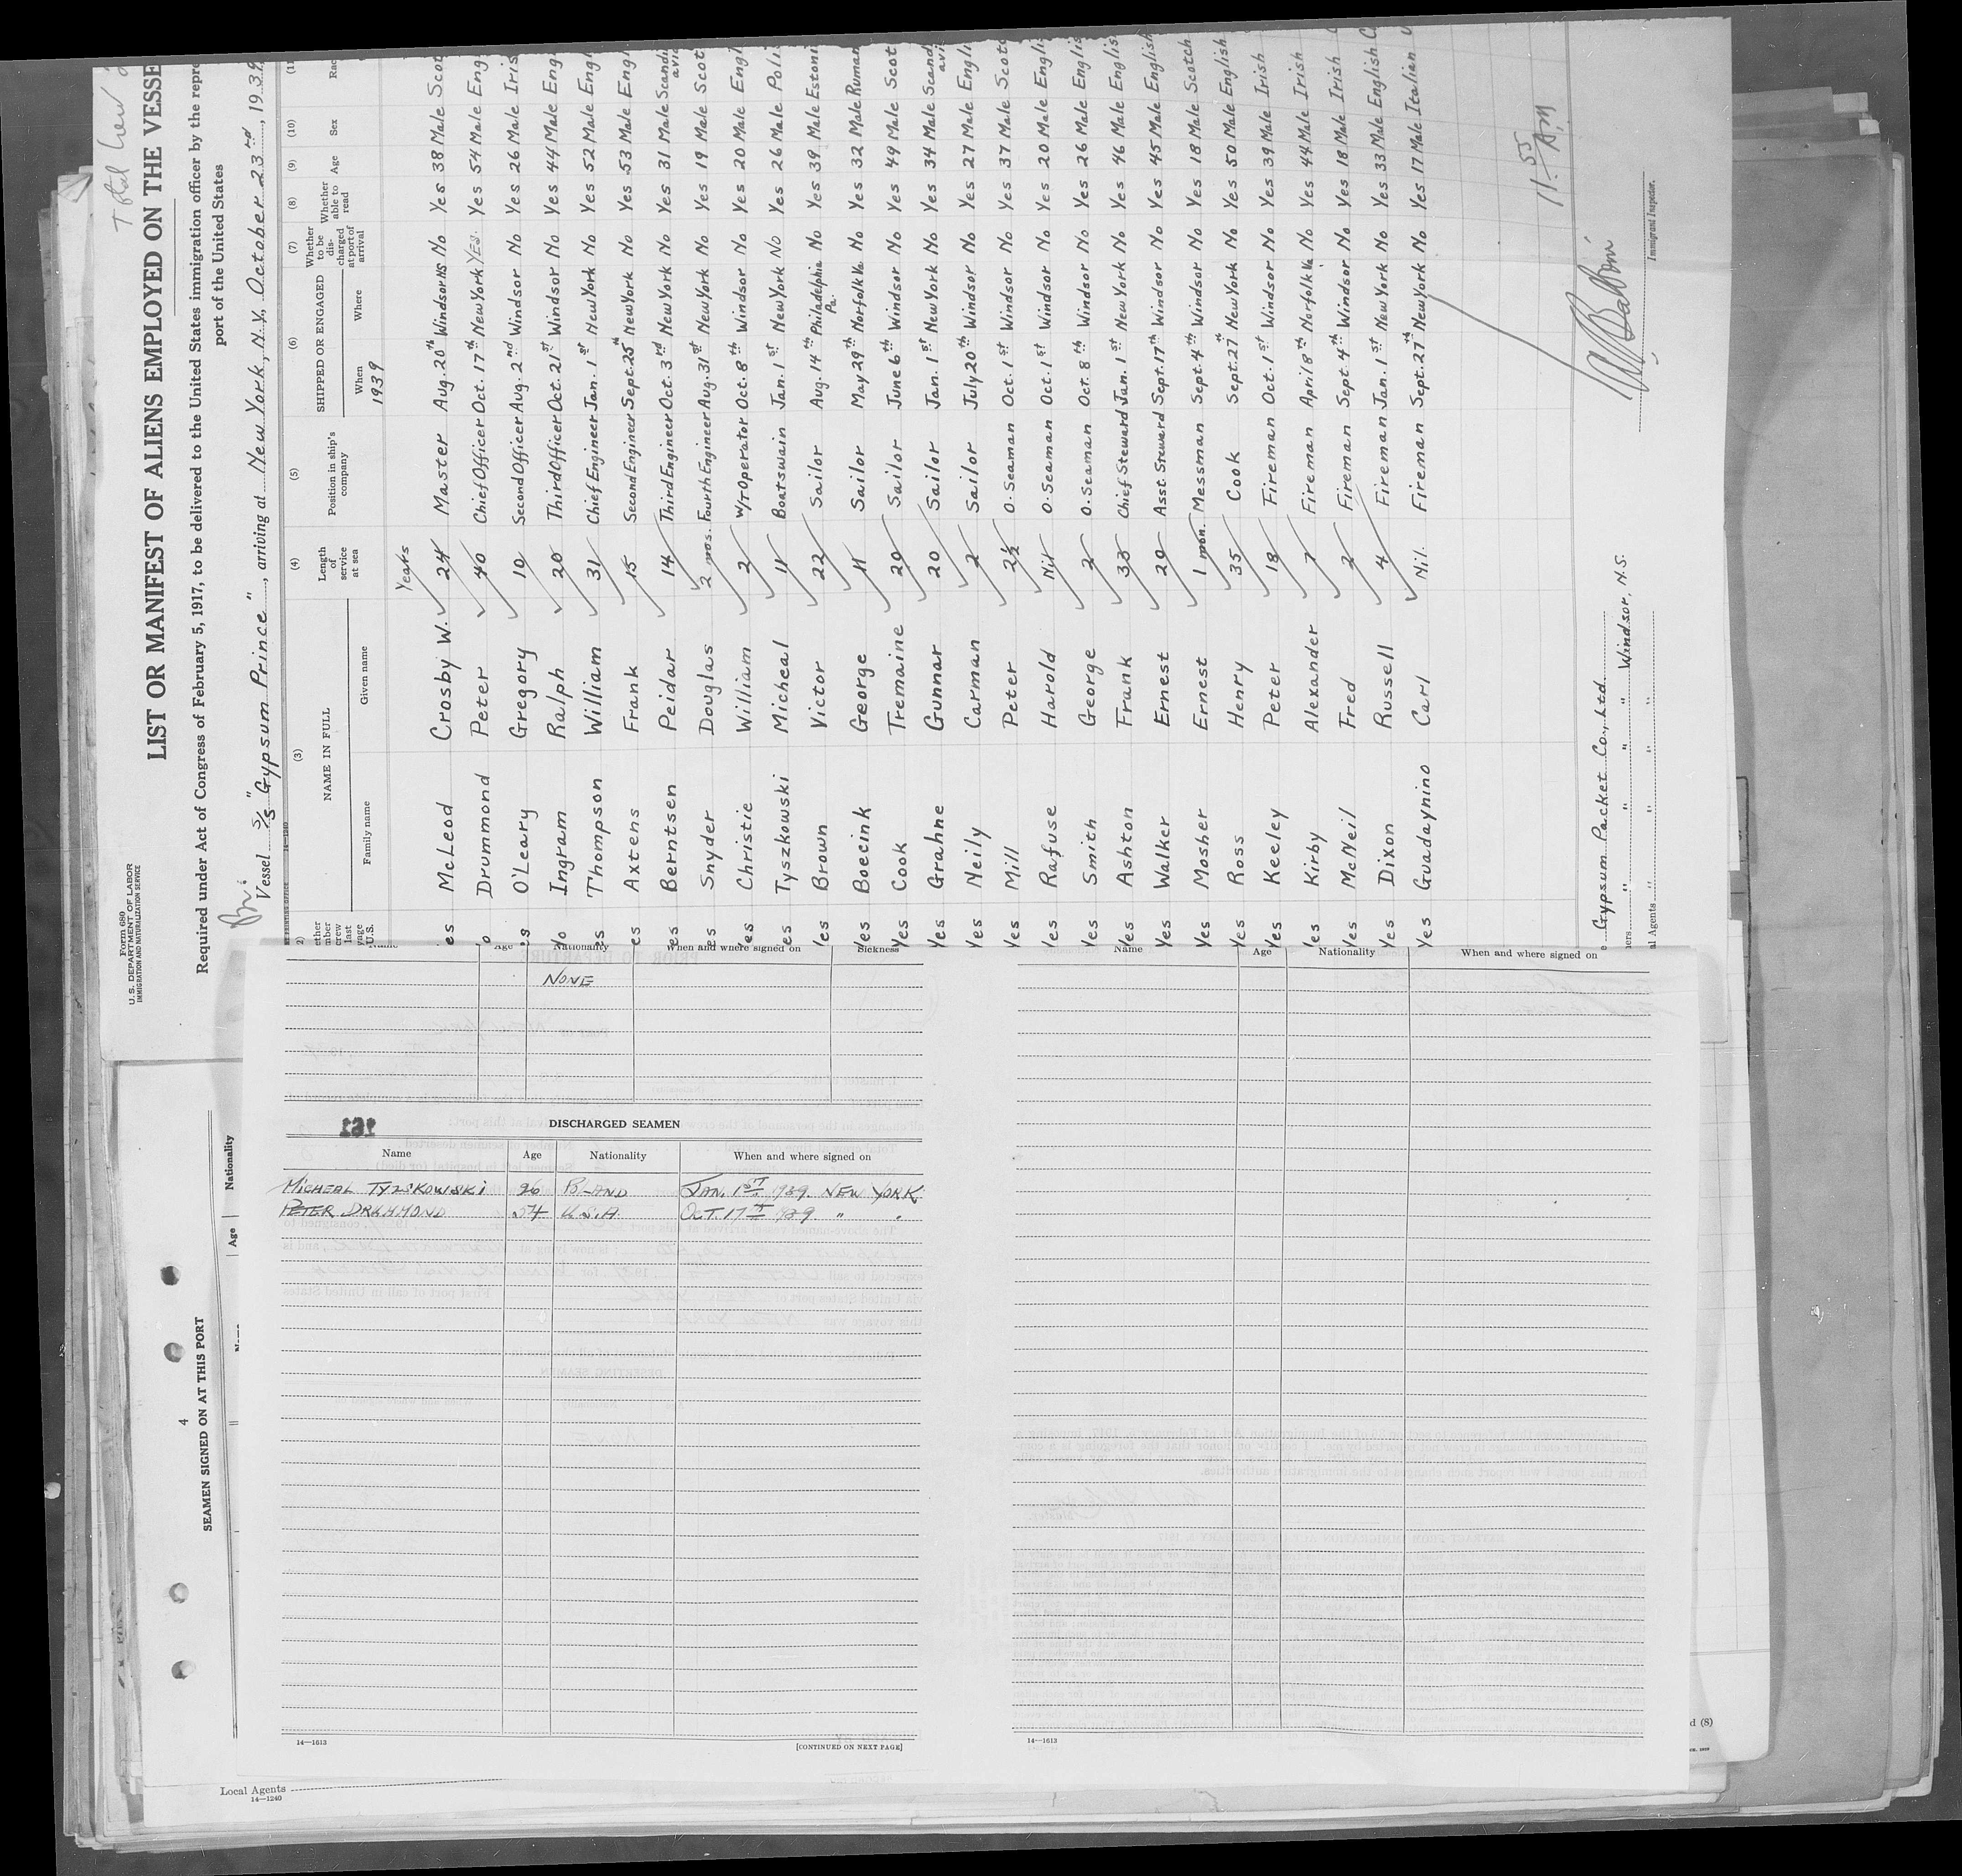 Form 680
U. S. DEPARTMENT OF LABOR
IMMIGRATION AND NATURALIZATION SERVICE
Total Crew
LIST OR MANIFEST OF ALIENS EMPLOYED ON THE VESSE
Required under Act of Congress of February 5, 1917, to be delivered to the United States immigration officer by the repre
port of the United States
Br.
Vessel S/S "Gypsum Prince", arriving at New York, N.Y. October 23rd, 1939
(3) (4) (5) (6) (7) (8) (9) (10) (11
NAME IN FULL
Family name Given name
Length of service at sea
Position in ship's company
SHIPPED OR ENGAGED
When Where
1939
Whether to be discharged at port of arrival
Whether able to read
Age Sex Rac
Years
es McLeod Crosby W. 24 Master Aug. 20th Windsor NS No Yes 38 Male Scot
o Drummond Peter 40 Chief Officer Oct. 17th New York YES. Yes 54 Male Engl
es O'Leary Gregory 10 Second Officer Aug. 2nd Windsor No Yes 26 Male Iris
No Ingram Ralph 20 Third Officer Oct. 21st Windsor No Yes 44 Male Engl
es Thompson William 31 Chief Engineer Jan. 1st New York No Yes 52 Male Engl
es Axtens Frank 15 Second Engineer Sept. 25th New York No Yes 53 Male Engl
es Berntsen Peidar 14 Third Engineer Oct. 3rd New York No Yes 31 Male Scandi avia
es Snyder Douglas 2 mos. Fourth Engineer Aug. 31st New York No Yes 19 Male Scot
es Christie William 2 W/T Operator Oct. 8th Windsor No Yes 20 Male Engl
es Tyszkowski Micheal 11 Boatswain Jan. 1st New York No Yes 26 Male Poli
Yes Brown Victor 22 Sailor Aug. 14th Philadelphia Pa. No Yes 39 Male Estoni
Yes Boecink George 11 Sailor May 29th Norfolk Va No Yes 32 Male Ruman
Yes Cook Tremaine 20 Sailor June 6th Windsor No Yes 49 Male Scot
Yes Grahne Gunnar 20 Sailor Jan. 1st New York No Yes 34 Male Scand avi
Yes Neily Carman 2 Sailor July 20th Windsor No Yes 27 Male Engli
Yes Mill Peter 2½ O. Seaman Oct. 1st Windsor No Yes 37 Male Scotc
Yes Rafuse Harold Nil O. Seaman Oct. 1st Windsor No Yes 20 Male Engli
Yes Smith George 2 O. Seaman Oct. 8th Windsor No Yes 26 Male Englis
Yes Ashton Frank 33 Chief Steward Jan. 1st New York No Yes 46 Male English
Yes Walker Ernest 20 Asst. Steward Sept. 17th Windsor No Yes 45 Male English
Yes Mosher Ernest 1 mon. Messman Sept. 4th Windsor No Yes 18 Male Scotch
Yes Ross Henry 35 Cook Sept. 27th New York No Yes 50 Male English
Yes Keeley Peter 18 Fireman Oct. 1st Windsor No Yes 39 Male Irish
Yes Kirby Alexander 7 Fireman April 8th Norfolk Va No Yes 44 Male Irish
Yes McNeil Fred 2 Fireman Sept. 4th Windsor No Yes 18 Male Irish
Yes Dixon Russell 4 Fireman Jan. 1st New York No Yes 33 Male English
Yes Guadaynino Carl Nil. Fireman Sept. 27th New York No Yes 17 Male Italian
11 55 A.M
Immigrant Inspector.
Gypsum Packet Co., Ltd.
ners " " " " Windsor, N.S.
al Agents " " " "
Name Age Nationality When and where signed on Sickness
NONE
DISCHARGED SEAMEN
Name Age Nationality When and where signed on
MICHEAL TYZSKOWSKI 26 JAN. 1ST 1939. NEW YORK
PETER DRUMMOND 54 U.S.A. OCT. 17TH 1939 " "
14—1613
[CONTINUED ON NEXT PAGE]
Name Age Nationality When and where signed on
14—1613
4
SEAMEN SIGNED ON AT THIS PORT
Name Age Nationality
Local Agents
14—1240
d (8)